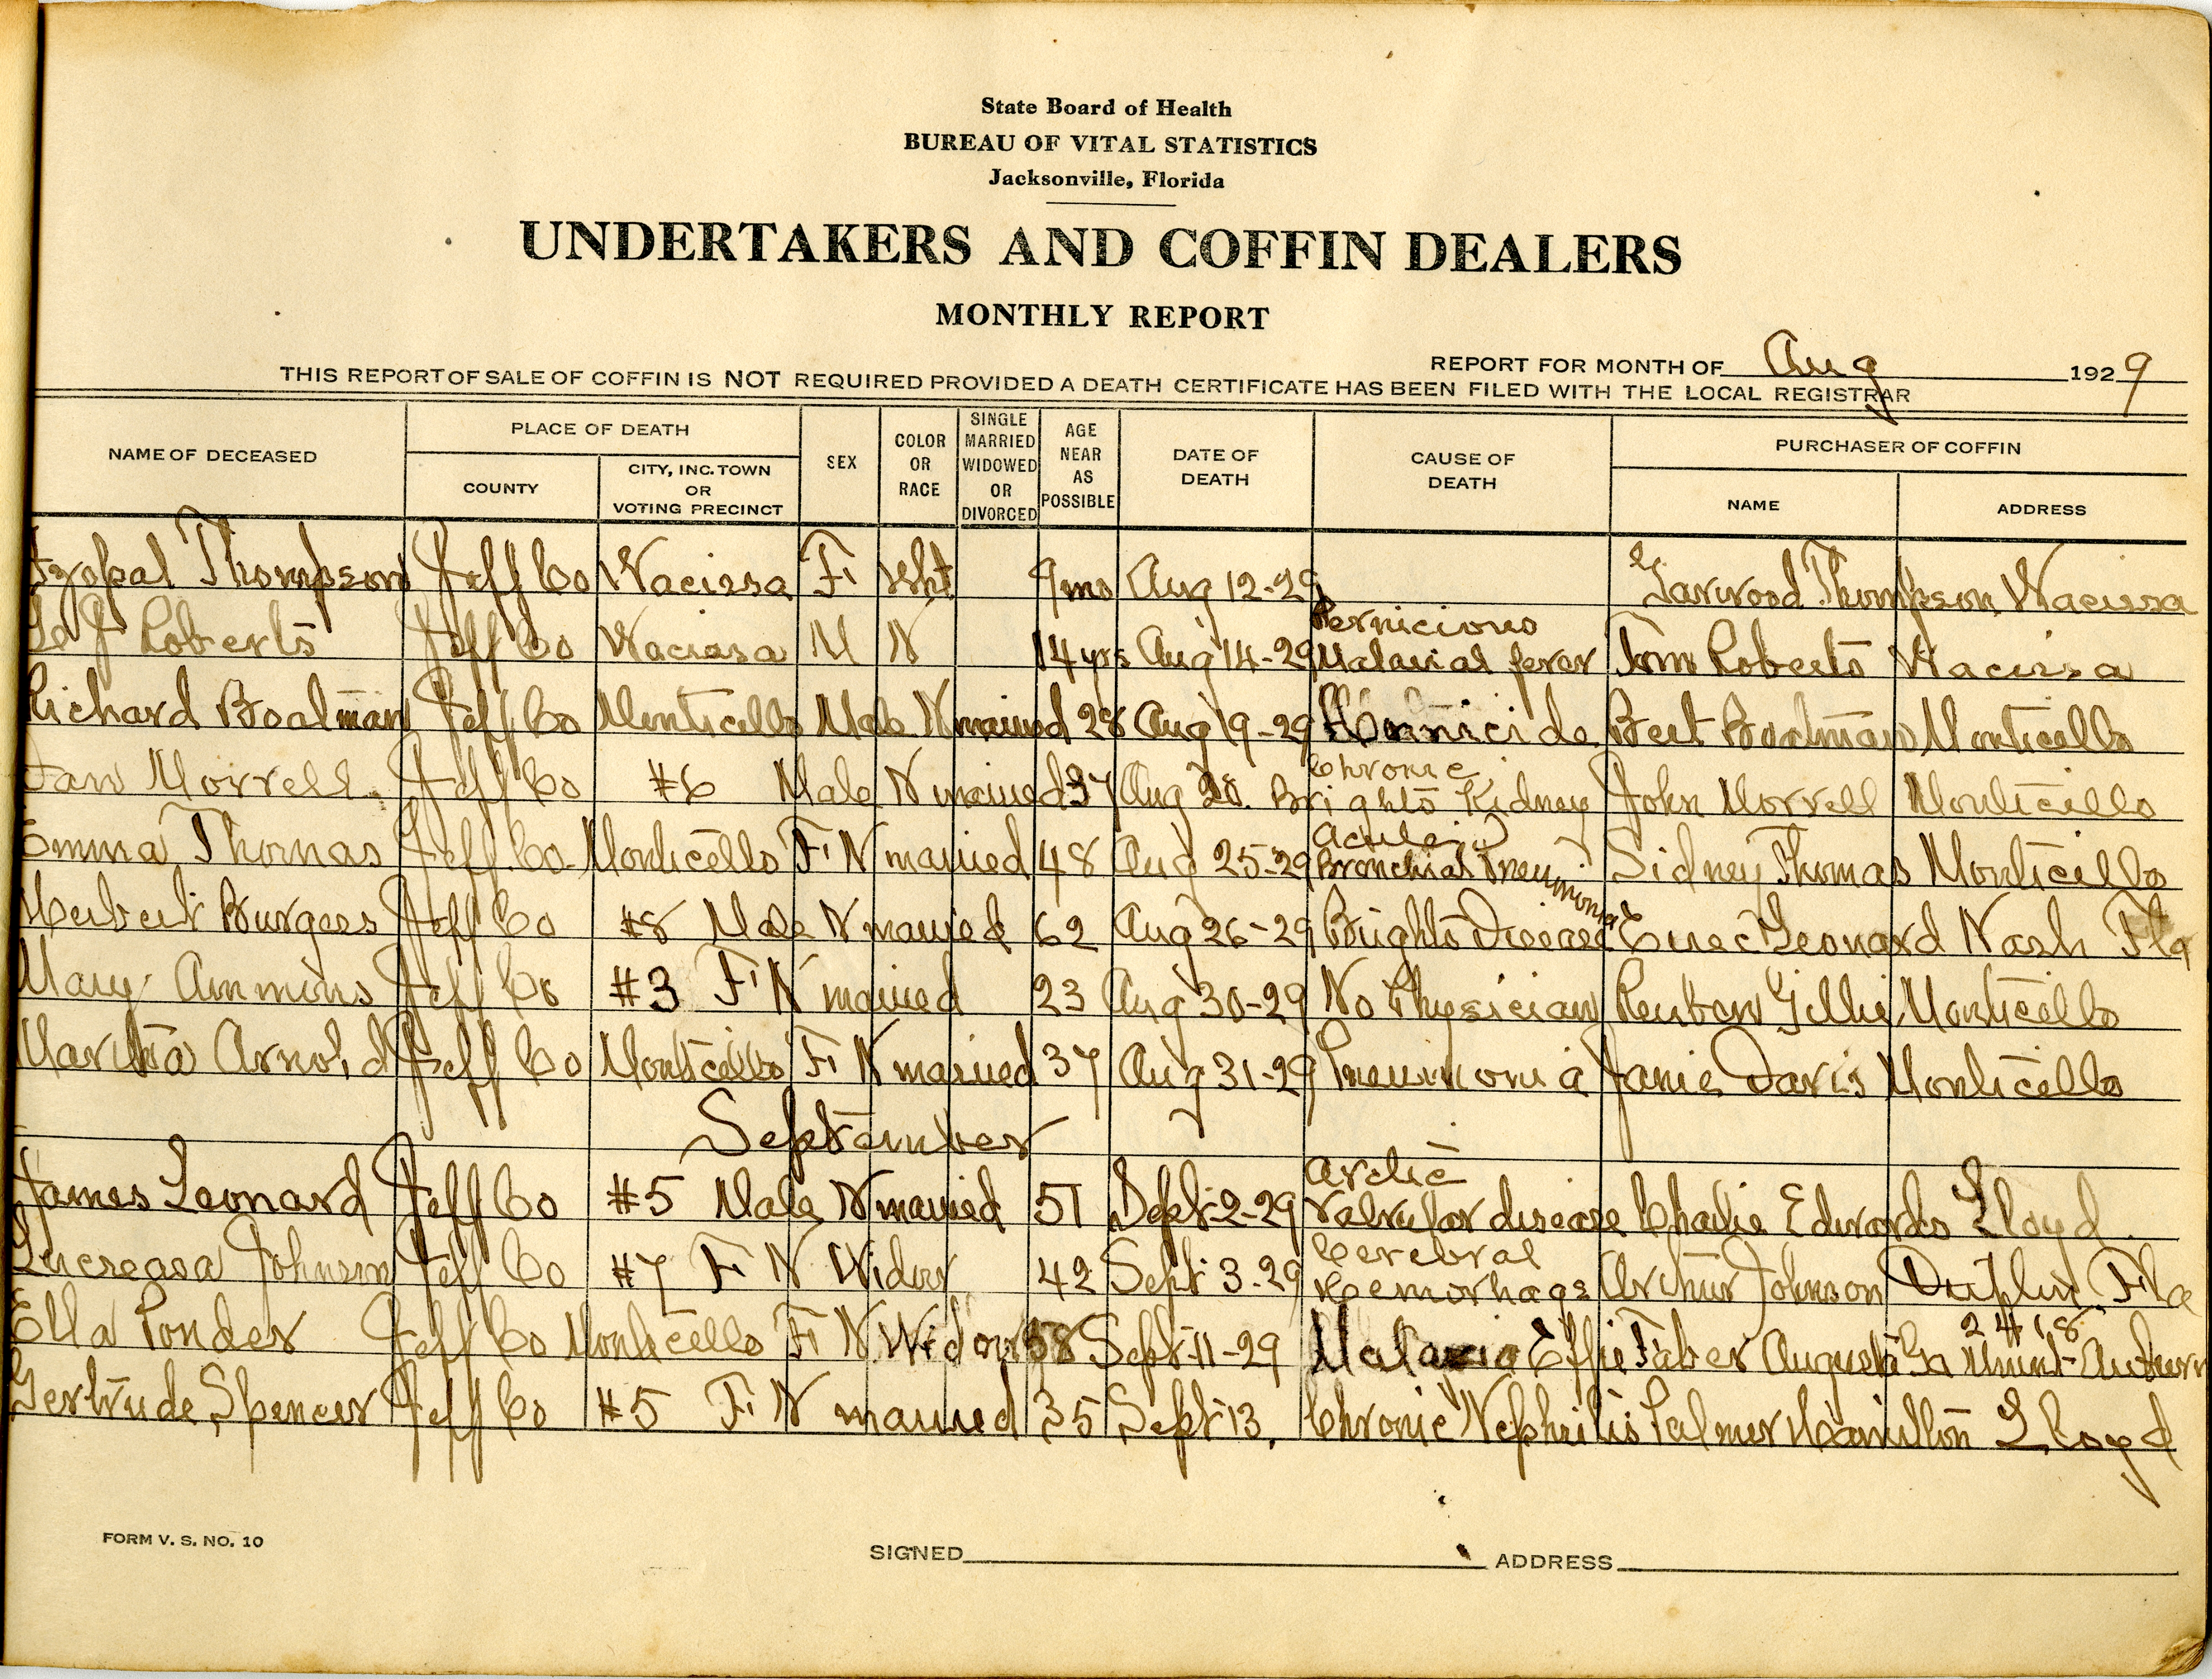 State Board of Health
BUREAU OF VITAL STATISTICS
Jacksonville, Florida
UNDERTAKERS AND COFFIN DEALERS
MONTHLY REPORT
REPORT FOR MONTH OF Aug 1929
THIS REPORT OF SALE OF COFFIN IS NOT REQUIRED PROVIDED A DEATH CERTIFICATE HAS BEEN FILED WITH THE LOCAL REGISTRAR
NAME OF DECEASED PLACE OF DEATH COUNTY CITY, INC. TOWN OR VOTING PRECINCT SEX COLOR OR RACE SINGLE MARRIED WIDOWED OR DIVORCED AGE NEAR AS POSSIBLE DATE OF DEATH CAUSE OF DEATH PURCHASER OF COFFIN NAME ADDRESS
Thompson Jeff Co Wacissa F Wht 9mo Aug 12-29 Garwood Thompson Wacissa
Roberts Jeff Co Wacissa M N 14yrs Aug 14-29 Pernicious Malarial fever Tom Roberts Wacissa
Richard Boatman Jeff Co Monticello Male N married 28 Aug 19-29 Homicide Bert Boatman Monticello
Morrell Jeff Co #6 Male N married 37 Aug 20. Chronic Brights Kidney John Morrell Monticello
Emma Thomas Jeff Co Monticello F N married 48 Aug 25-29 Bronchial Pneumonia Sidney Thomas Monticello
Herbert Burgess Jeff Co #8 Male N married 62 Aug 26-29 Brights Disease Leonard Nash Fla
Mary Ammons Jeff Co #3 F N married 23 Aug 30-29 No Physician Reuben Monticello
Martha Arnold Jeff Co Monticello F N married 37 Aug 31-29 Pneumonia Janie Davis Monticello
September
James Leonard Jeff Co #5 Male N married 51 Sept-2-29 valvular disease Charlie Edwards Lloyd
Lucreasa Johnson Jeff Co #7 F N Widow 42 Sept 3-29 Cerebral Hemorhage Arthur Johnson Fla
Ella Ponder Jeff Co Monticello F N Widow 58 Sept-11-29 Malaria Effie Faber Augusta Ga 2418
Gertrude Spencer Jeff Co #5 F N married 35 Sept-13, Chronic Nephritis Palmer Hamilton Lloyd
FORM V. S. NO. 10
SIGNED ADDRESS